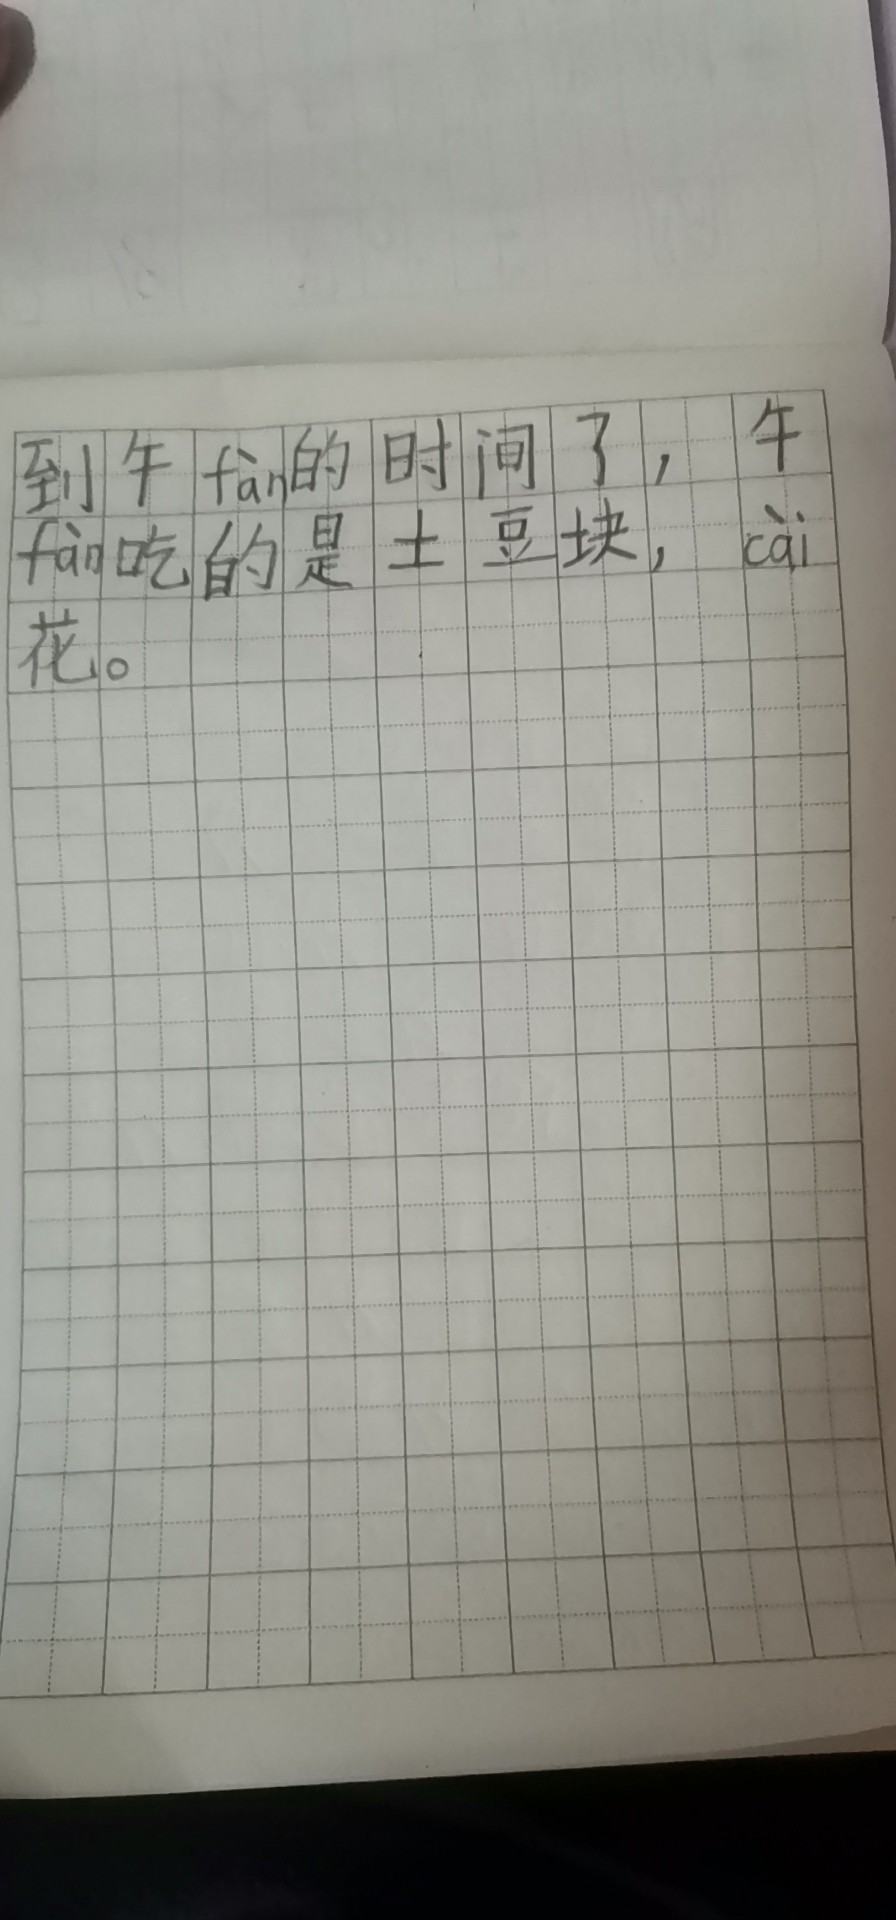 到午fàn的时间了，午
fàn吃的是土豆块，cài
花。